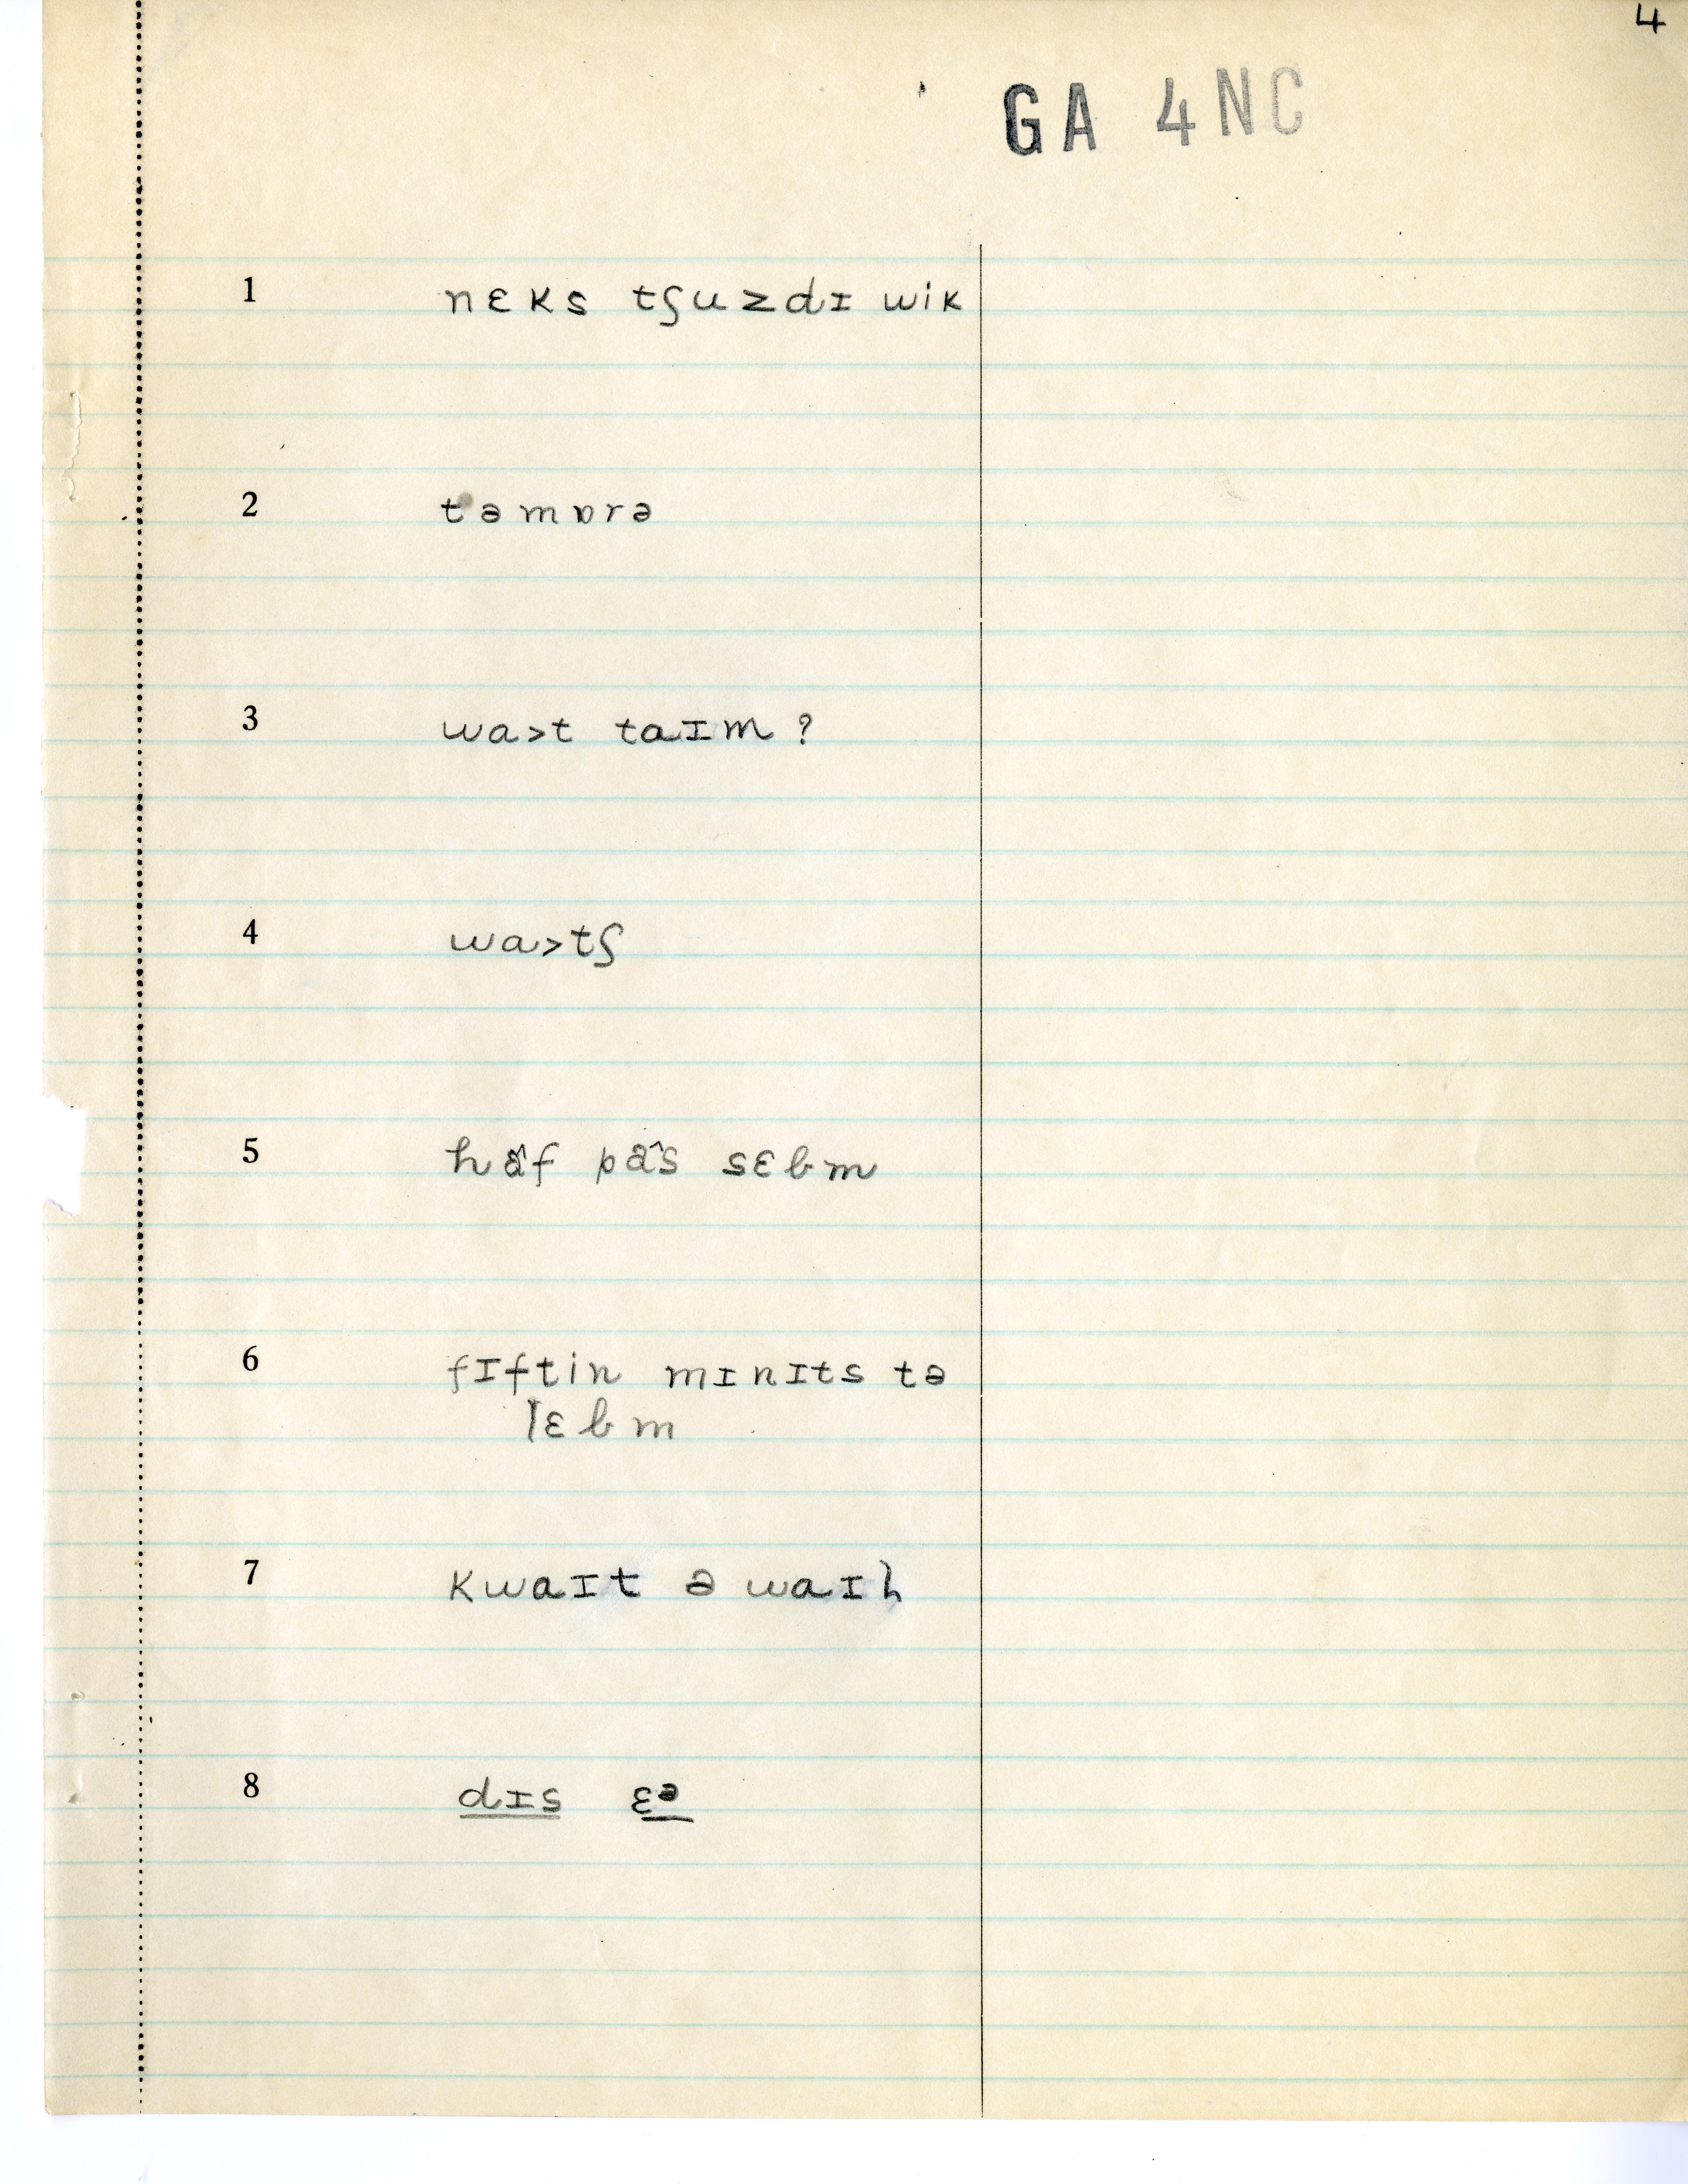 4
GA 4NC
1 nɛks tʃuzdɪ wik
2 təmɒrə
3 wa>t taɪm?
4 wa>tʃ
5 hâf pâs sɛbm
6 fɪftin mɪnɪts tə
lɛbm
7 kwaɪt ə waɪl
8 dɪs ɛᵊ